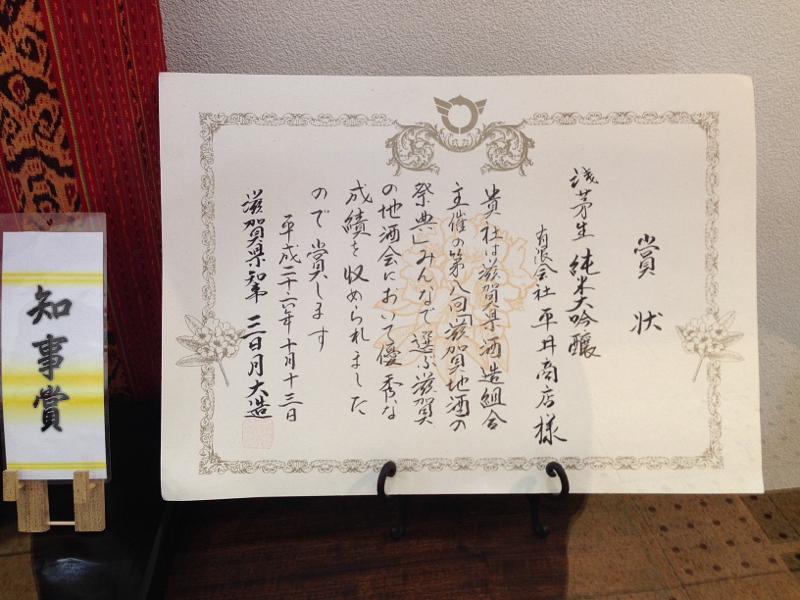 賞状
浅茅生 純米大吟醸
有限会社 平井商店 様
貴社は滋賀県酒造組合
主催の第八回「滋賀地酒の
祭典」みんなで選ぶ滋賀
の地酒会において優秀な
成績を収められました
ので賞します
平成二十六年十月十三日
滋賀県知事 三日月大造
知事賞